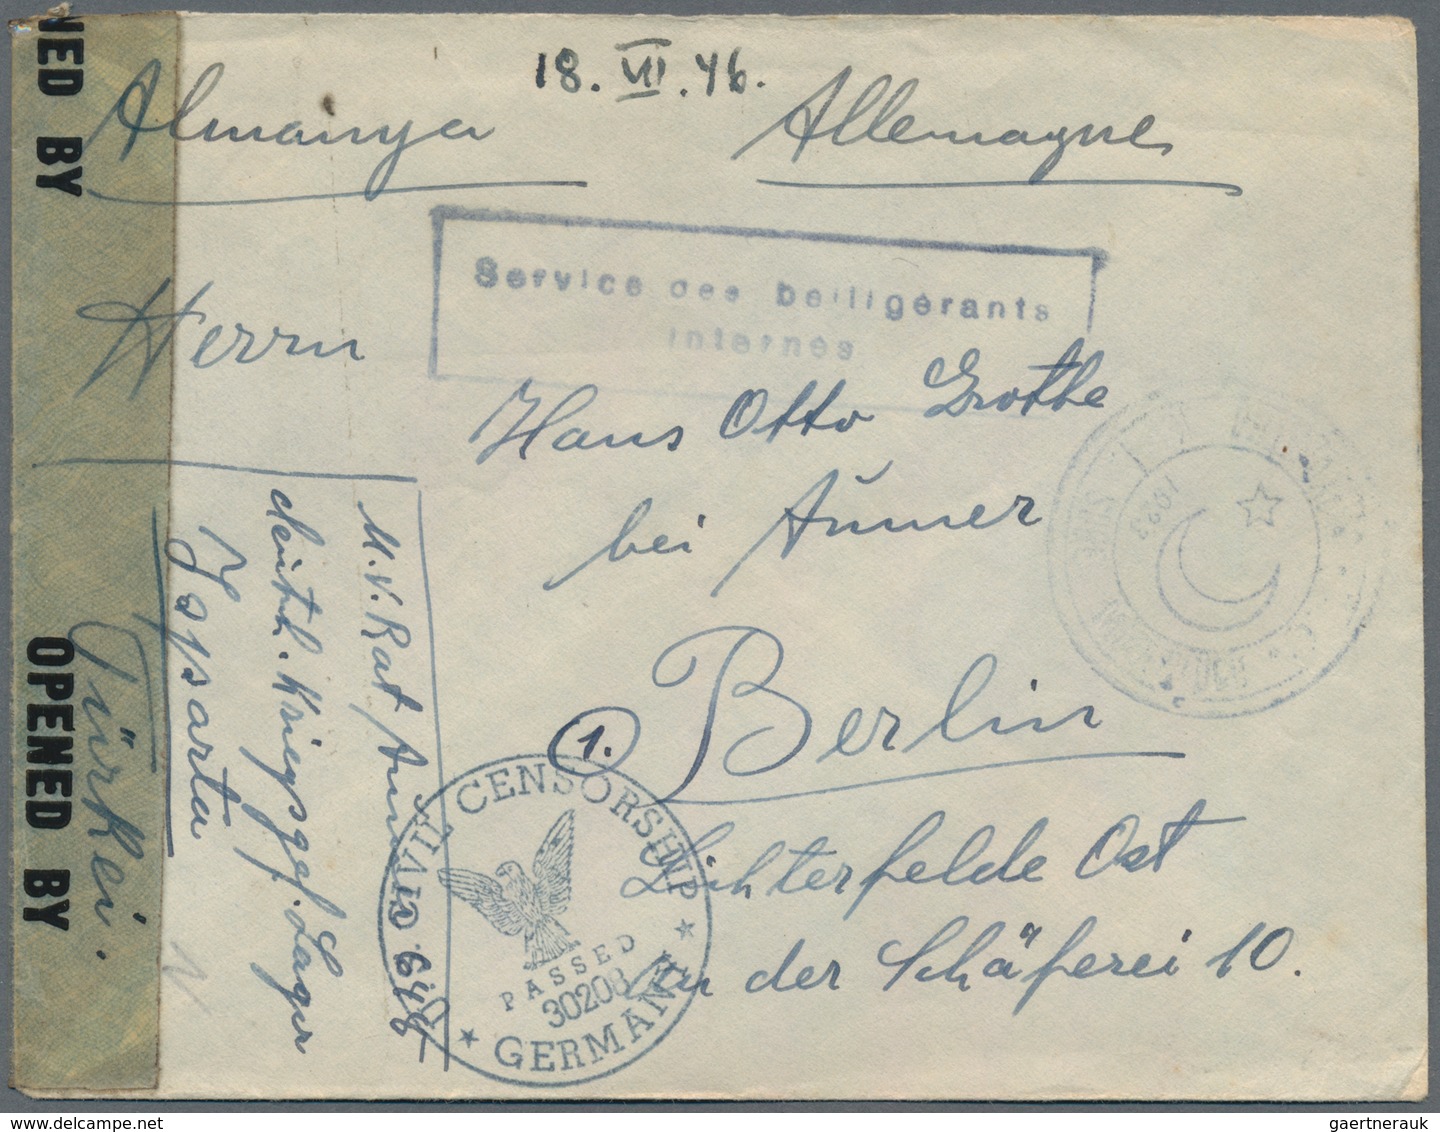 18. VII. 46.
Almanya Allemagne
Service des belligérants
internés
Herrn
Hans Otto Grothe
bei Aümer
1. Berlin
Lichterfelde Ost
An der Schäferei 10.
M. v. Rat
deutsch. Kriegsgef. Lager
Ysparta
Türkei.
NED BY
OPENED BY
CIVIL CENSORSHIP
PASSED
30208
GERMANY
1923
gaertnerauk @ delcampe.net